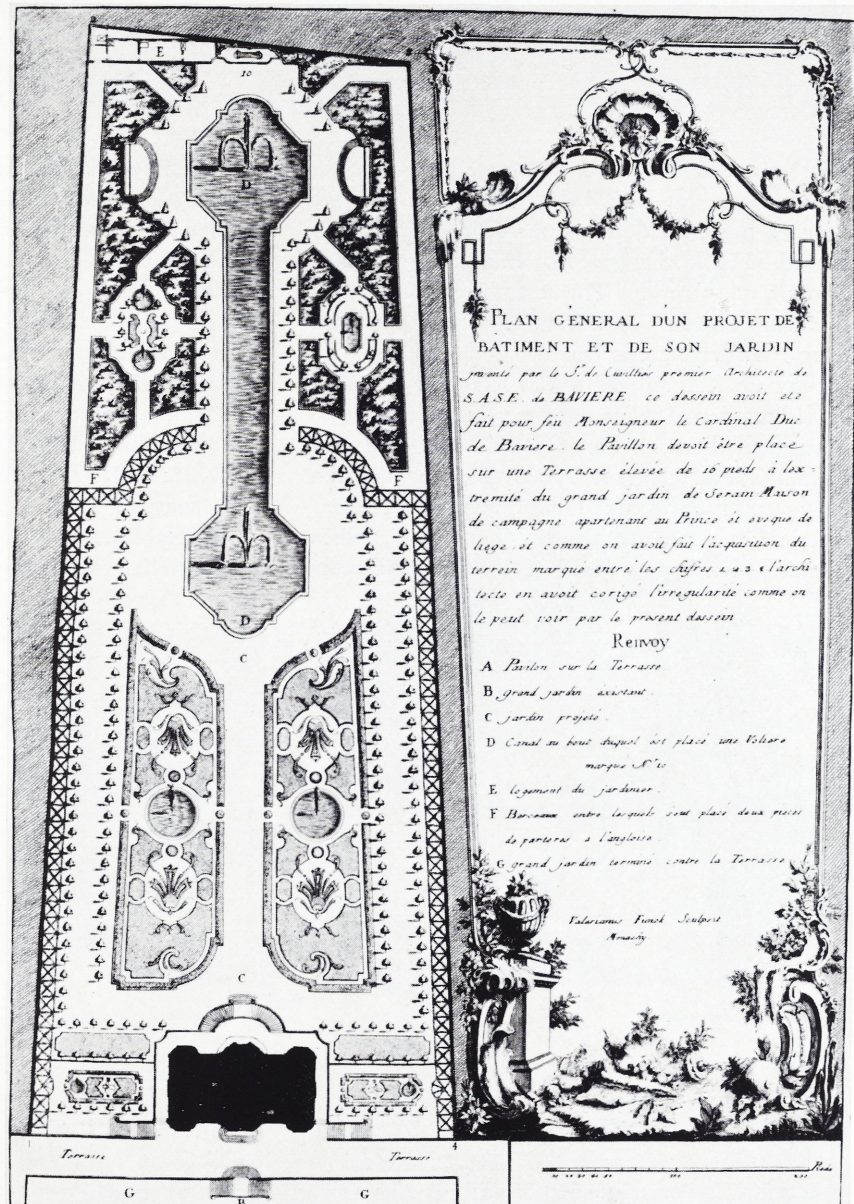 PLAN GÉNÉRAL D'UN PROJET DE
BATIMENT ET DE SON JARDIN
inventé par le Sr. de Cuvilliés premier Architecte de
S.A.S.E. de BAVIERE ce dessein avoit eté
fait pour feu Monseigneur le Cardinal Duc
de Baviere. le Pavillon devoit être placé
sur une Terrasse élevée de 16 pieds à l'ex-
tremité du grand jardin de Serain Maison
de campagne apartenant au Prince et eveque de
liege. et comme on avoit fait l'acquisition du
terrein marqué entre les chifres 1 2 3 4 l'archi
tecte en avoit corigé l'irregularité comme on
le peut voir par le present dessein
Renvoy
A Pavilon sur la Terrasse
B grand jardin existant.
C jardin projeté.
D Canal au bout duquel est placé une Voliere
marque No. 10
E logement du jardinier.
F Berceaux entre lesquels sont placé deux pieces
de parteres a l'angloise.
G grand jardin terminé contre la Terrasse
Valerianus Funck Sculpsit
Monachy
2
3
E
10
D
F
F
D
C
C
4
Terrasse
Terrasse
G
G
B